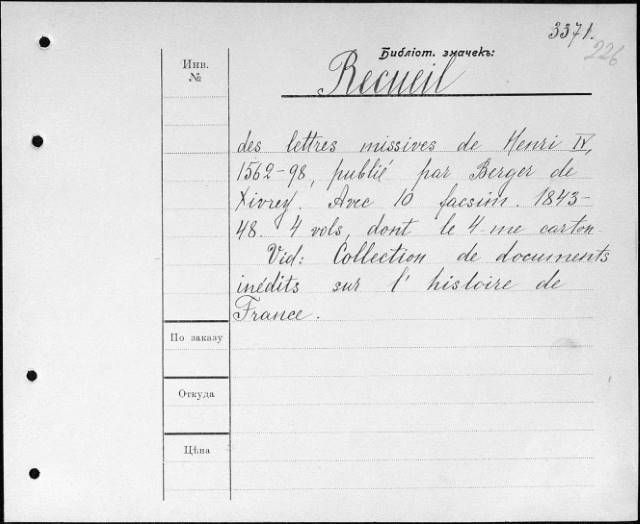 3371.
226
Библіот. значекъ:
Инв.
№
Recueil
des lettres missives de Henri IV,
1562-98, publié par Berger de
Xivrey. Avec 10 facsim. 1843-
48. 4 vols, dont le 4-me carton.
Vid: Collection de documents
inédits sur l'histoire de
France.
По заказу
Откуда
Цѣна